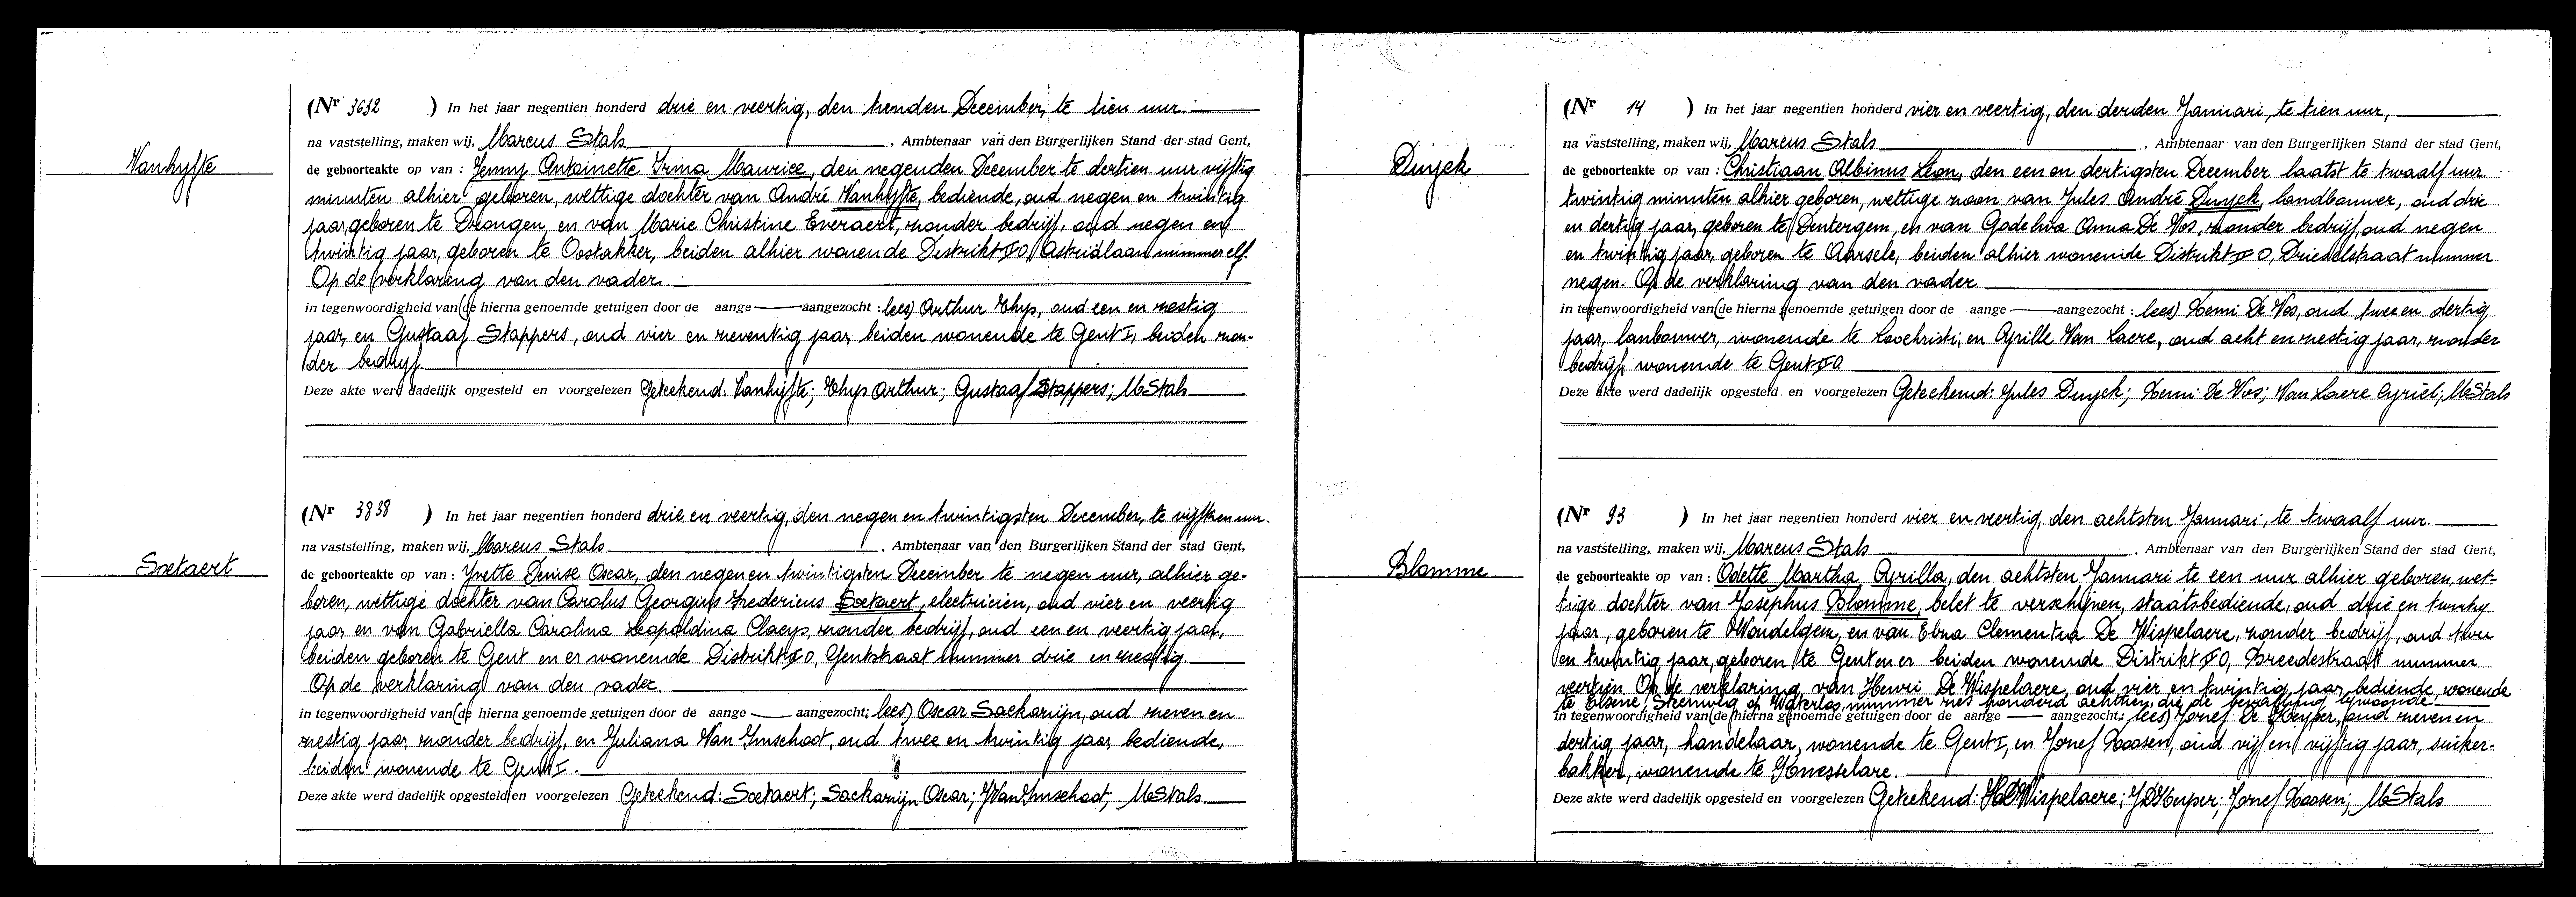 Vanhyfte
(Nr 3632 ) In het jaar negentien honderd drie en veertig, den tienden December, te tien uur.
na vaststelling, maken wij, Marcus Stals , Ambtenaar van den Burgerlijken Stand der stad Gent,
de geboorteakte op van : Jenny Antoinette Irma Maurice, den negenden December te dertien uur vijftig
minuten alhier geboren, wettige dochter van André Vanhyfte, bediende, oud negen en twintig
jaar, geboren te Drongen, en van Marie Christine Everaert, zonder bedrijf, oud negen en
twintig jaar, geboren te Oostakker, beiden alhier wonende Distrikt O, Astridlaan nummer elf.
Op de verklaring van den vader.
in tegenwoordigheid van (de hierna genoemde getuigen door de aange — aangezocht : lees) Arthur Thys, oud een en zestig
jaar, en Gustaaf Stappers, oud vier en zeventig jaar, beiden wonende te Gent I, beiden zon-
der bedrijf.
Deze akte werd dadelijk opgesteld en voorgelezen Geteekend: Vanhyfte; Thys Arthur; Gustaaf Stappers; M Stals
Soetaert
(Nr 3838 ) In het jaar negentien honderd drie en veertig, den negen en twintigsten December, te vijftien uur.
na vaststelling, maken wij, Marcus Stals , Ambtenaar van den Burgerlijken Stand der stad Gent,
de geboorteakte op van : Yvette Denise Oscar, den negen en twintigsten December te negen uur, alhier ge-
boren, wettige dochter van Carolus Georgius Fredericus Soetaert, electricien, oud vier en veertig
jaar en van Gabriella Carolina Leopoldina Claeys, zonder bedrijf, oud een en veertig jaar,
beiden geboren te Gent en er wonende Distrikt O, Gentstraat nummer drie en zestig.
Op de verklaring van den vader.
in tegenwoordigheid van (de hierna genoemde getuigen door de aange — aangezocht: lees) Oscar Sackarijn, oud zeven en
zestig jaar zonder bedrijf, en Juliana Van Imschoot, oud twee en twintig jaar, bediende,
beiden wonende te Gent I.
Deze akte werd dadelijk opgesteld en voorgelezen Geteekend: Soetaert; Sackarijn Oscar; J Van Imschoot; M Stals
Duyck
(Nr 14 ) In het jaar negentien honderd vier en veertig, den derden Januari, te tien uur,
na vaststelling, maken wij, Marcus Stals , Ambtenaar van den Burgerlijken Stand der stad Gent,
de geboorteakte op van : Christiaan Albinus Léon, den een en dertigsten December laatst te twaalf uur
twintig minuten alhier geboren, wettige zoon van Jules André Duyck, landbouwer, oud drie
en dertig jaar, geboren te Dentergem, en van Godelieva Anna De Vos, zonder bedrijf, oud negen
en twintig jaar, geboren te Aarsele, beiden alhier wonende Distrikt O, Drieselstraat nummer
negen. Op de verklaring van den vader.
in tegenwoordigheid van (de hierna genoemde getuigen door de aange — aangezocht : lees) Remi De Vos, oud twee en dertig
jaar, lanbouwer, wonende te Loochristi, en Cyrille Van Laere, oud acht en zestig jaar, zonder
bedrijf, wonende te Gent O
Deze akte werd dadelijk opgesteld en voorgelezen Geteekend: Jules Duyck; Remi De Vos; Van Laere Cyriel; M Stals
Blomme
(Nr 93 ) In het jaar negentien honderd vier en veertig, den achtsten Januari, te twaalf uur.
na vaststelling, maken wij, Marcus Stals , Ambtenaar van den Burgerlijken Stand der stad Gent,
de geboorteakte op van : Odette Martha Cyrilla, den achtsten Januari te een uur alhier geboren, wet-
tige dochter van Josephus Blomme, belet te verschijnen, staatsbediende, oud drie en twintig
jaar, geboren te Wondelgem, en van Elna Clementina De Wispelaere, zonder bedrijf, oud twee
en twintig jaar, geboren te Gent en er beiden wonende Distrikt O, Breedestraat nummer
veertien. Op de verklaring van Henri De Wispelaere, oud vier en twintig jaar, bediende, wonende
te Elsene, Steenweg op Waterloo, nummer zes honderd achttien, die de bevalling bijwoonde
in tegenwoordigheid van (de hierna genoemde getuigen door de aange — aangezocht: lees) Jozef De Keyser, oud zeven en
dertig jaar, handelaar, wonende te Gent I, en Jozef Goosen, oud vijf en vijftig jaar, suiker-
bakker, wonende te Knesselare.
Deze akte werd dadelijk opgesteld en voorgelezen Geteekend: H De Wispelaere; J D Keyser; Jozef Goosen; M Stals